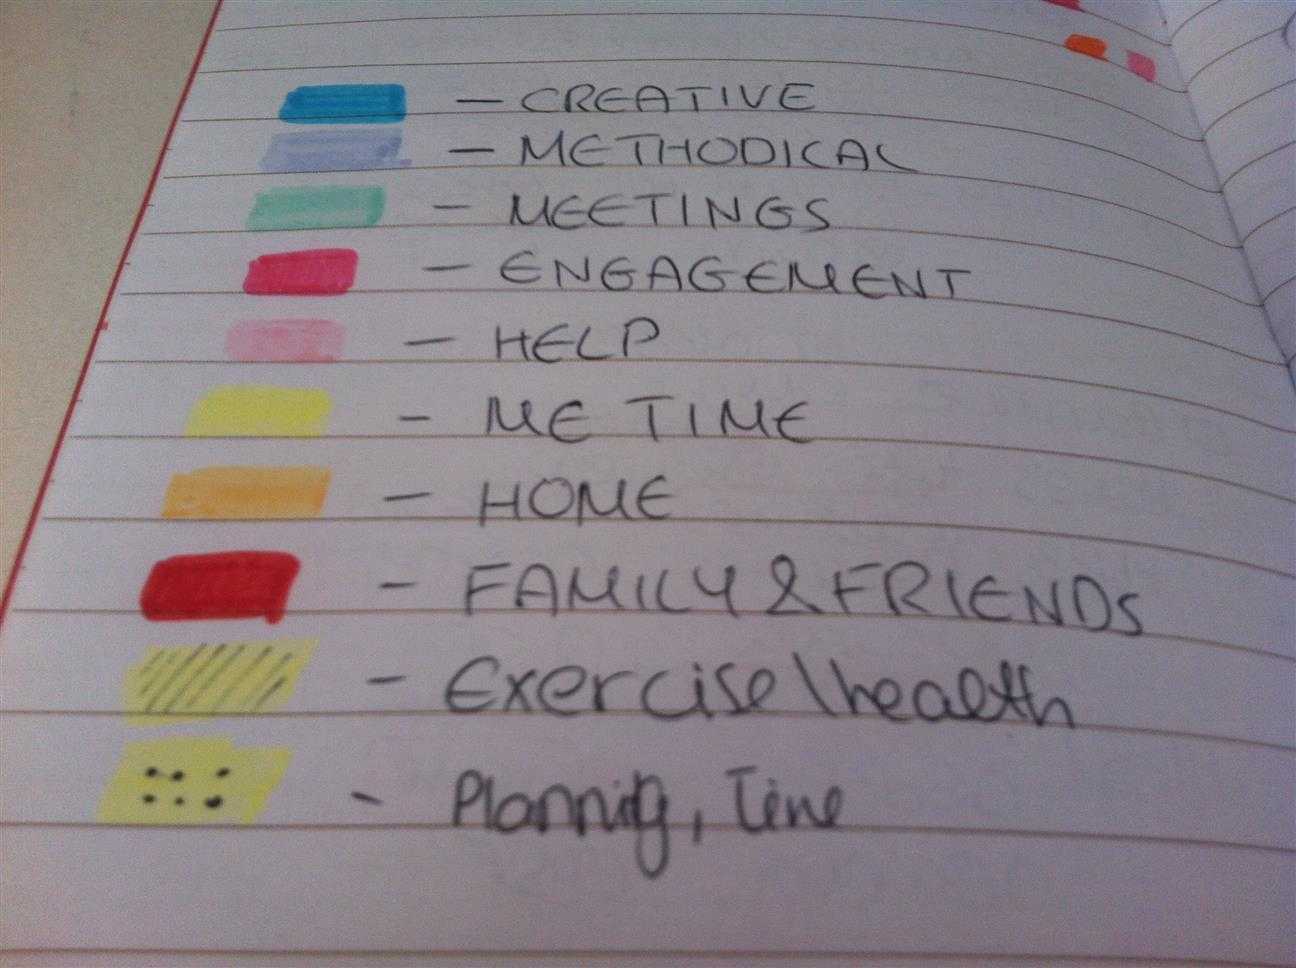 — CREATIVE
— METHODICAL
- MEETINGS
— ENGAGEMENT
— HELP
- ME TIME
- HOME
- FAMILY & FRIENDS
- Exercise\health
- Planning, Time